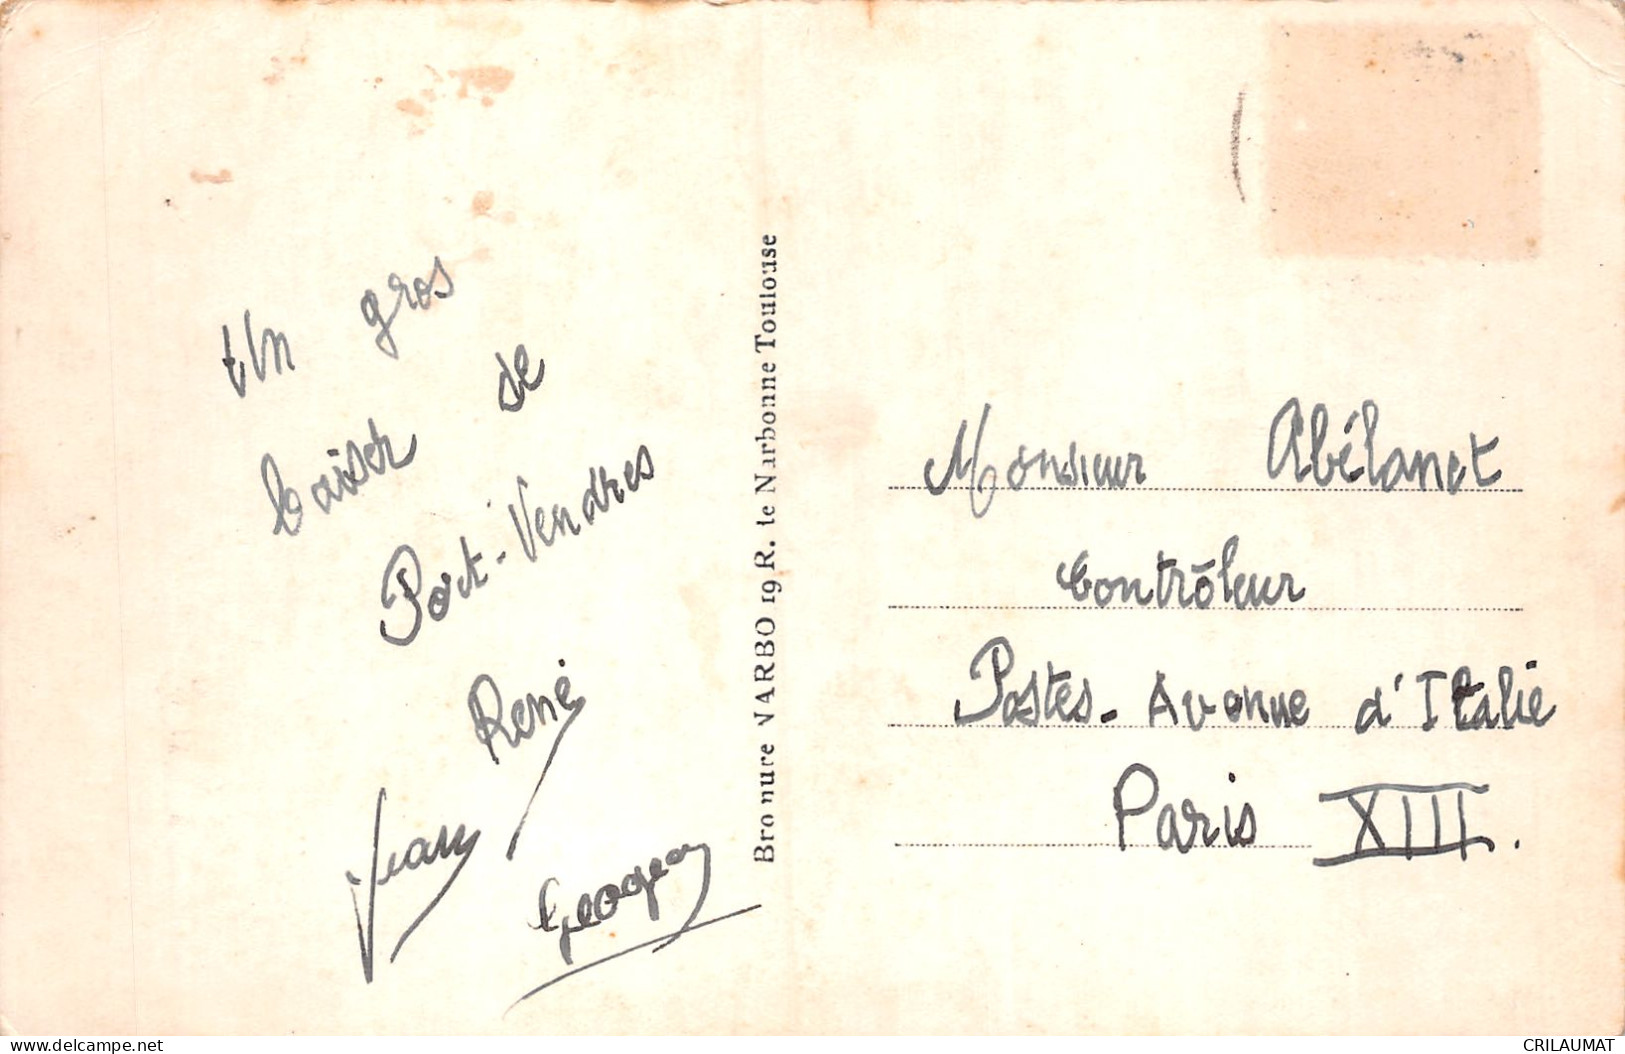 Un gros
baiser de
Port-Vendres
René
Jean
Georges
Bro nure NARBO 19 R. de Narbonne Toulouse
Monsieur Abélanet
Contrôleur
Postes - Avenue d'Italie
Paris XIII.
www.delcampe.net
CRILAUMAT